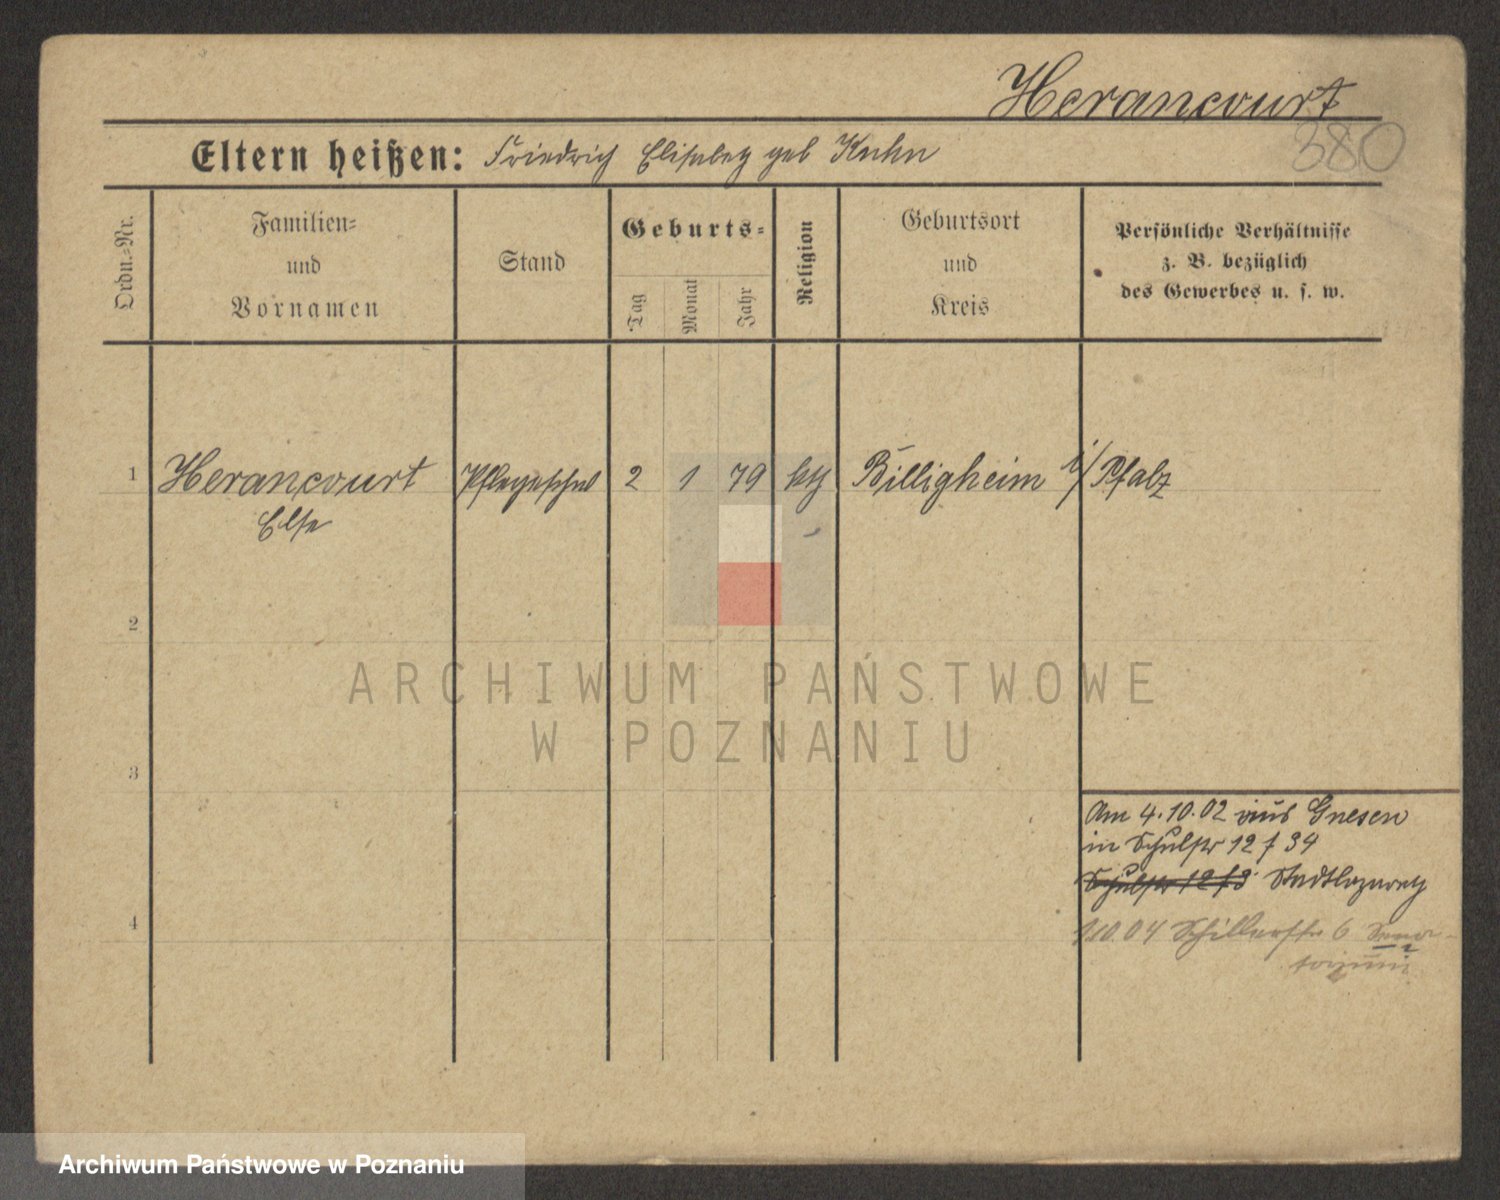 Herancourt
380
Eltern heißen: Friedrich Elisabeth geb Kuhn
Ordn.-Nr.
Familien-
und
Vornamen
Stand
Geburts-
Tag
Monat
Jahr
Religion
Geburtsort
und
Kreis
Persönliche Verhältnisse
z. B. bezüglich
des Gewerbes u. s. w.
1 Herancourt Pflegeschw 2 1 79 kth Billigheim i/Pfalz
Else
2
ARCHIWUM PAŃSTWOWE
W POZNANIU
3
Am 4.10.02 aus Gnesen
in Schulstr 12 f 34
Schulstr 12 f 3 Stadtlazareth
4
1.10.04 Schillerstr 6
Archiwum Państwowe w Poznaniu